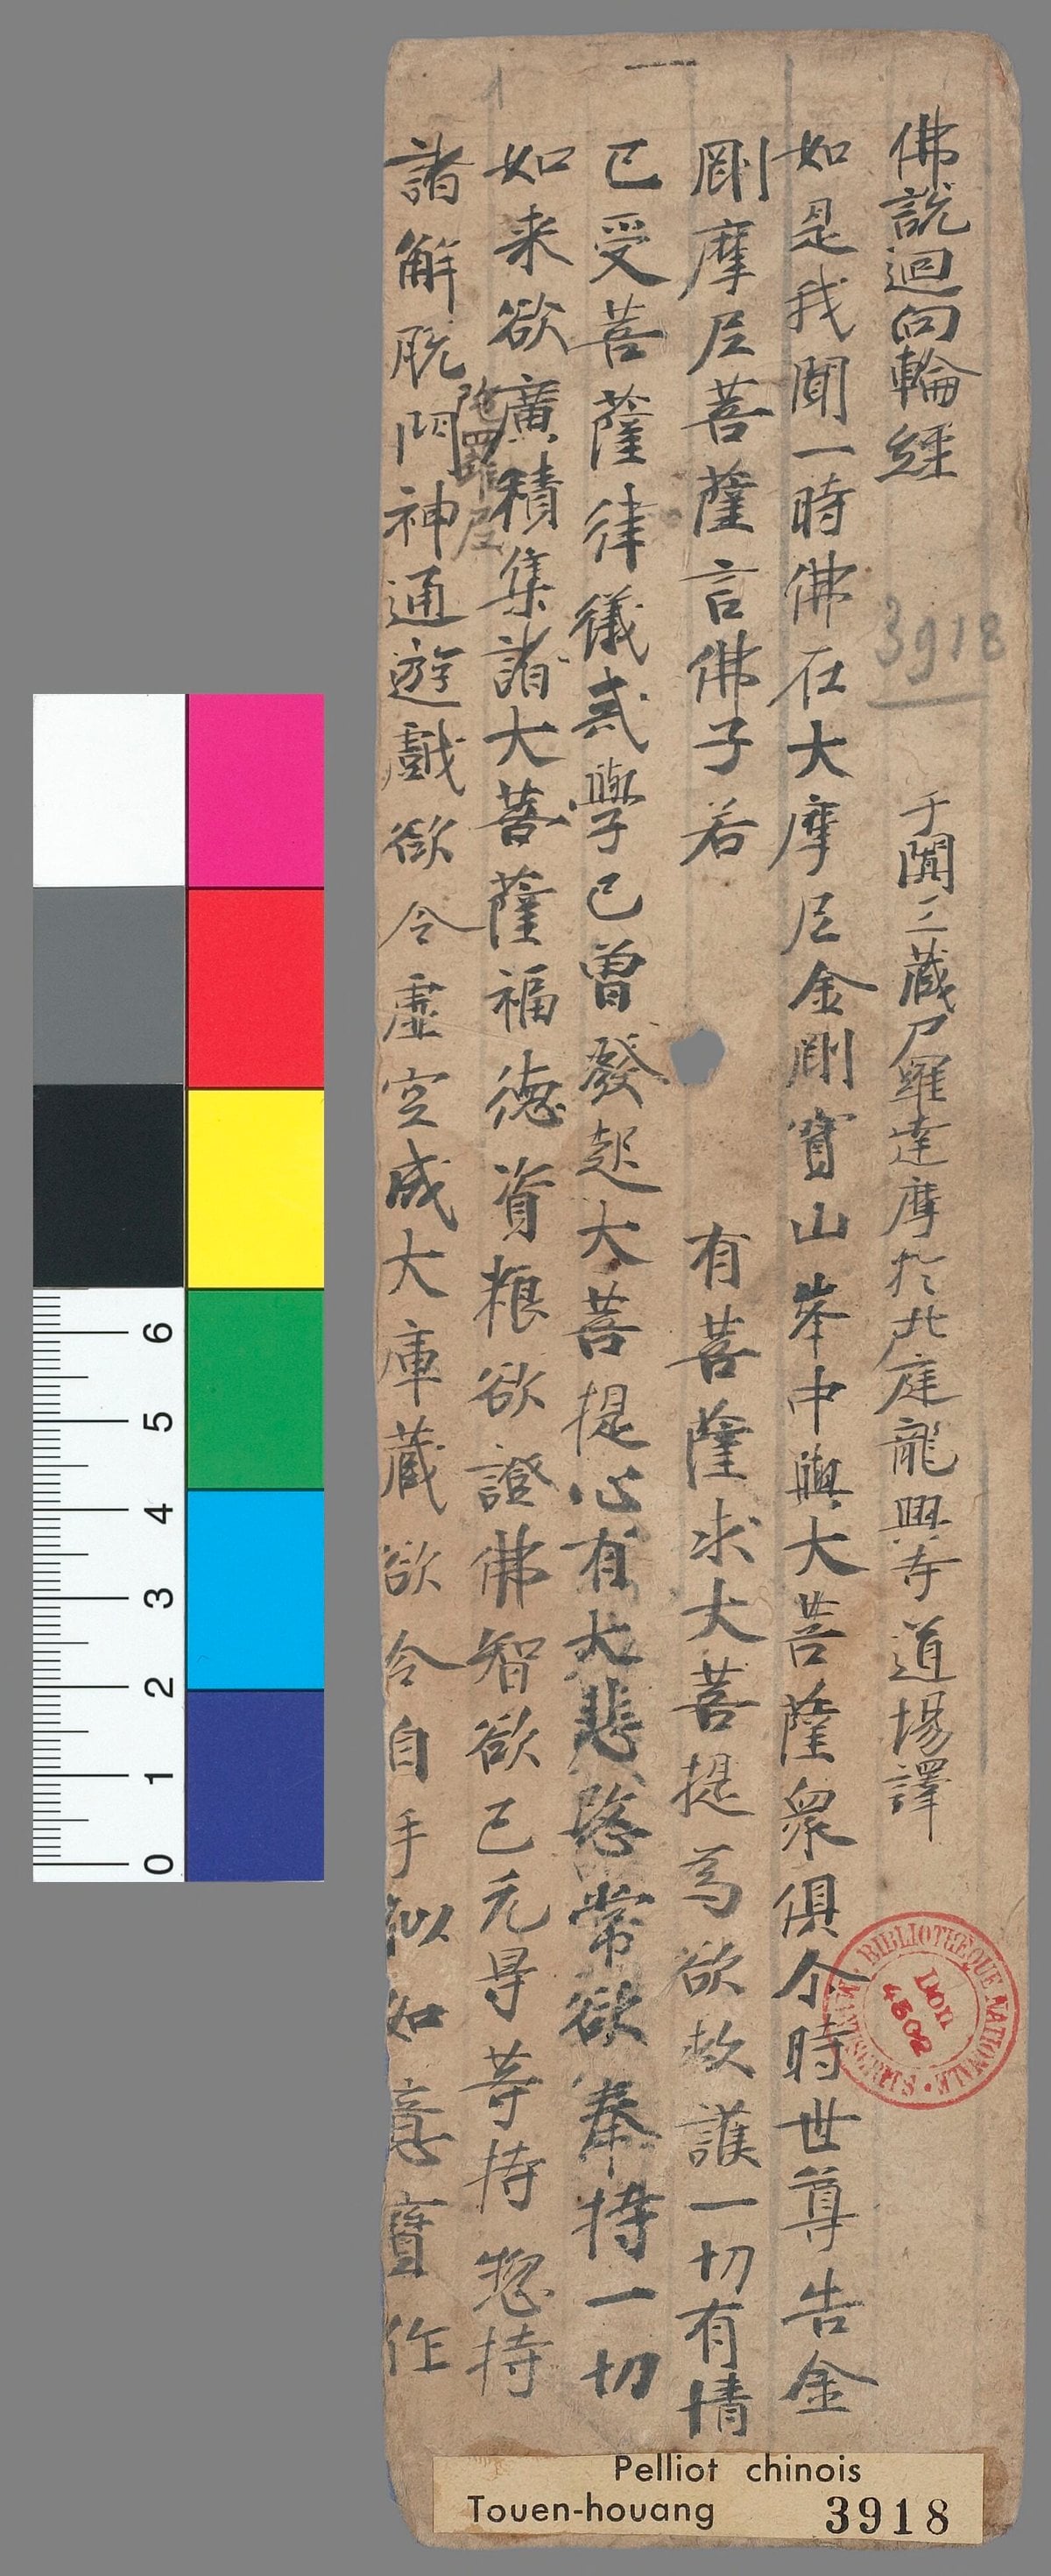 佛說迴向輪經 于闐三藏尸羅達摩於北庭龍興寺道場譯
如是我聞一時佛在大摩尼金剛寶山峯中與大菩薩衆俱尒時世尊告金
剛摩尼菩薩言佛子若有菩薩求大菩提為欲救護一切有情
已受菩薩律儀貳學已曾發起大菩提心有大悲愍常欲奉持一切
如来欲廣積集諸大菩薩福德資粮欲證佛智欲已无㝵等持惣持
陁羅尼
諸解脫門神通遊戲欲令虛空成大庫蔵欲令自手似如意寶作
一
1
3918
BIBLIOTHÈQUE NATIONALE
MANUSCRITS
Don
4502
Pelliot chinois
Touen-houang 3918
6 5 4 3 2 1 0